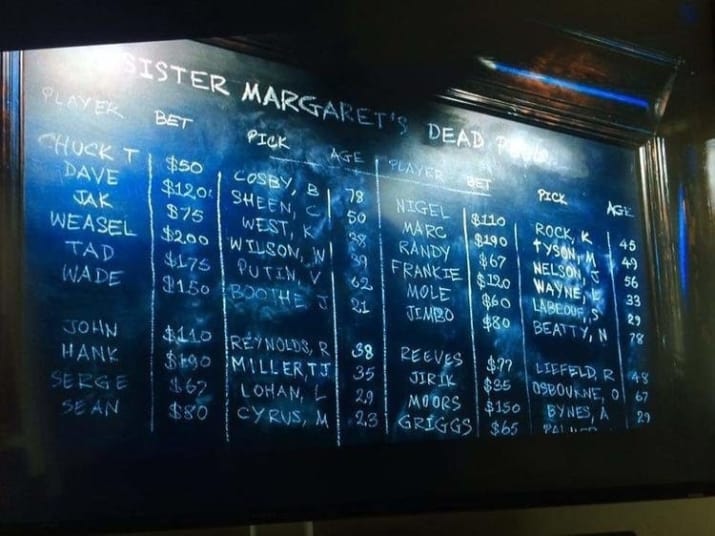 SISTER MARGARET'S DEAD
PLAYER BET PICK AGE PLAYER BET PICK AGE
CHUCK T $50 COSBY, B 78 NIGEL $110 ROCK, K 45
DAVE $120 SHEEN, C 50 MARC $190 TYSON, M 49
JAK $75 WEST, K 38 RANDY $67 NELSON, J 56
WEASEL $200 WILSON, W 39 FRANKIE $120 WAYNE, L 33
TAD $175 PUTIN, V 62 MOLE $60 LABEOUF, S 29
WADE $150 BOOTHE J 21 JIMBO $80 BEATTY, N 78
JOHN $110 REYNOLDS, R 38 REEVES $77 LIEFELD, R 48
HANK $190 MILLER TJ 35 JIRIK $35 OSBOURNE, O 67
SERGE $67 LOHAN, L 29 MOORS $150 BYNES, A 29
SEAN $80 CYRUS, M 23 GRIGGS $65